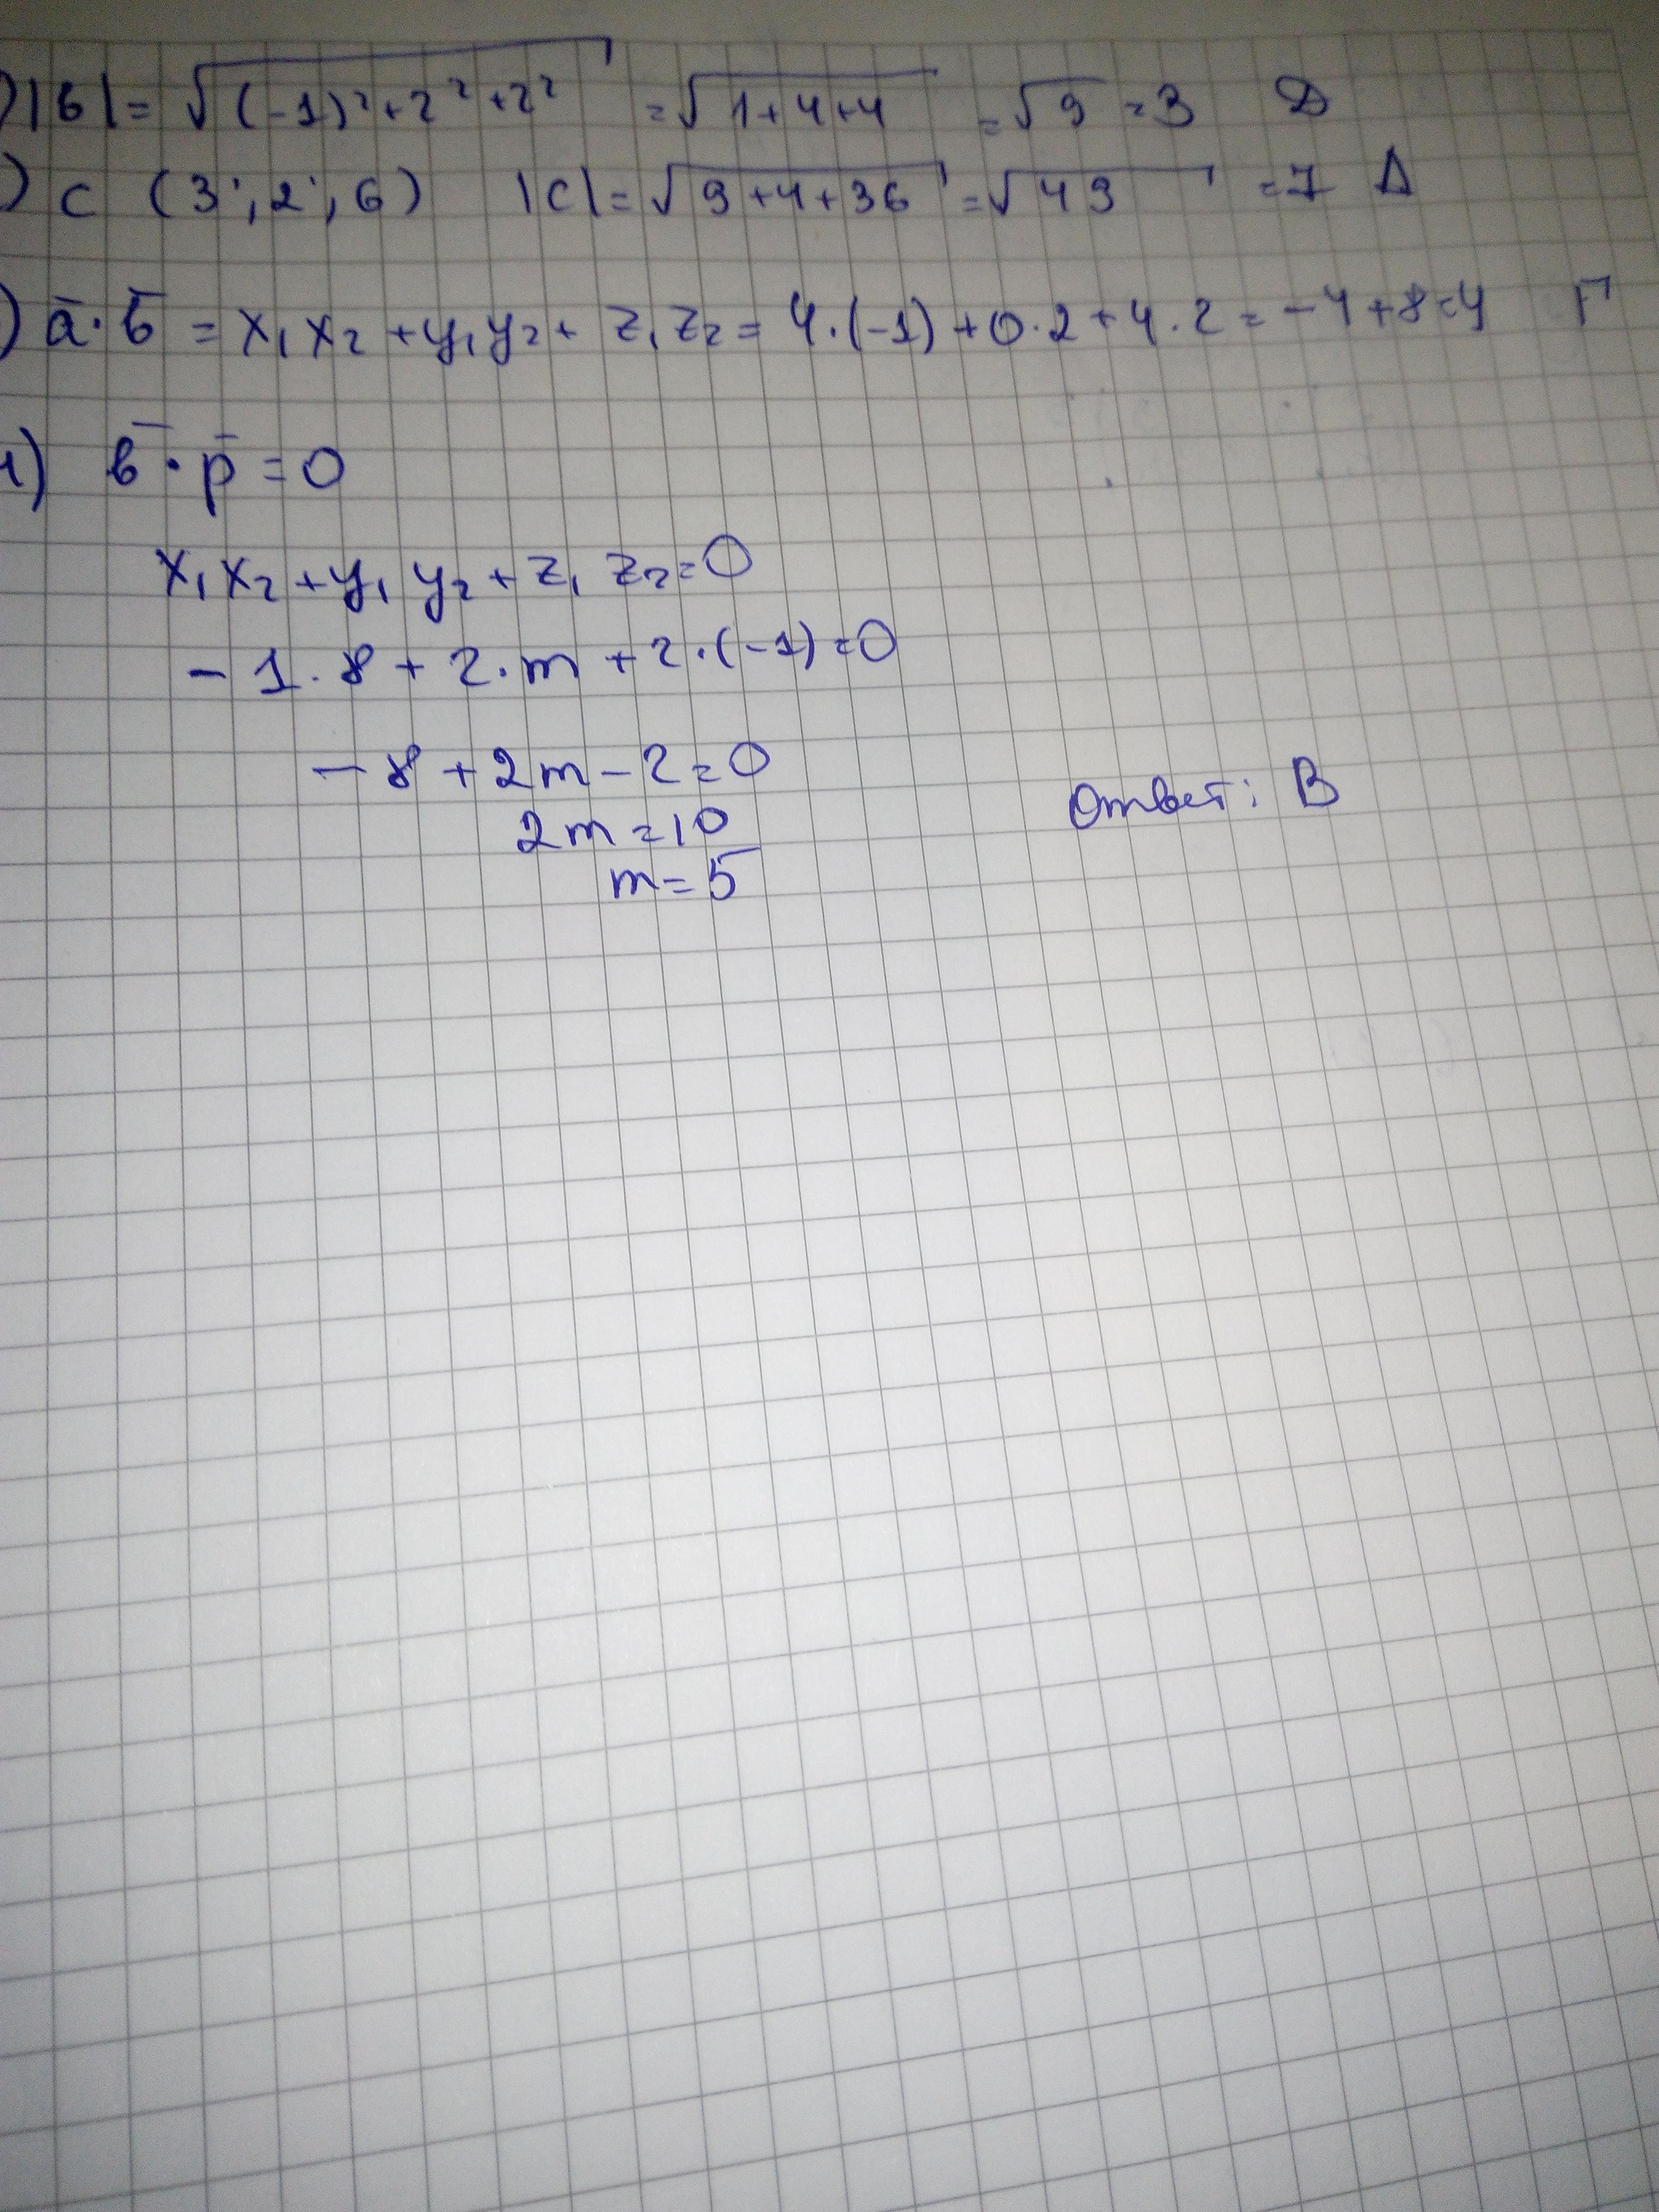 ) |б| = √((-1)²+2²+2²) = √(1+4+4) = √9 = 3 Д
) с (3; 2; 6) |с| = √(9+4+36) = √49 = 7 Д
) ā · б̄ = x₁x₂ + y₁y₂ + z₁z₂ = 4·(-1) + 0·2 + 4·2 = -4+8=4 Г
) в̄ · p̄ = 0
x₁x₂ + y₁y₂ + z₁z₂ = 0
-1·8 + 2·m + 2·(-1) = 0
-8 + 2m - 2 = 0
Ответ: В
2m = 10
m = 5